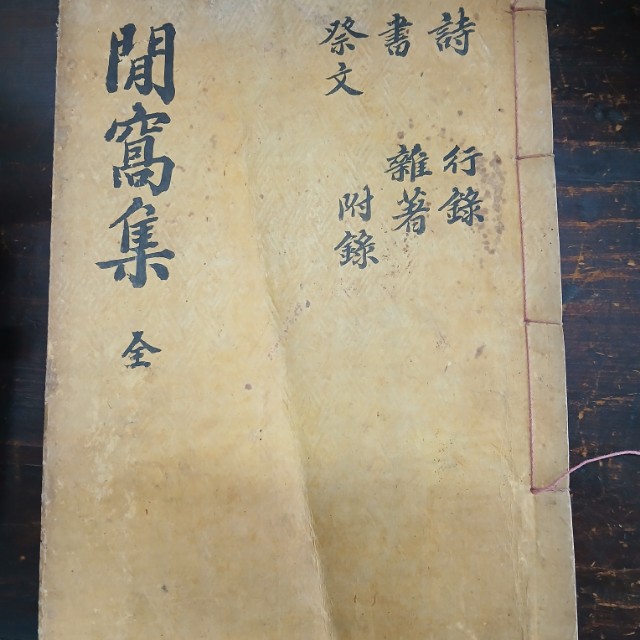 詩 行錄
書 雜著
祭文 附錄
閒窩集 全